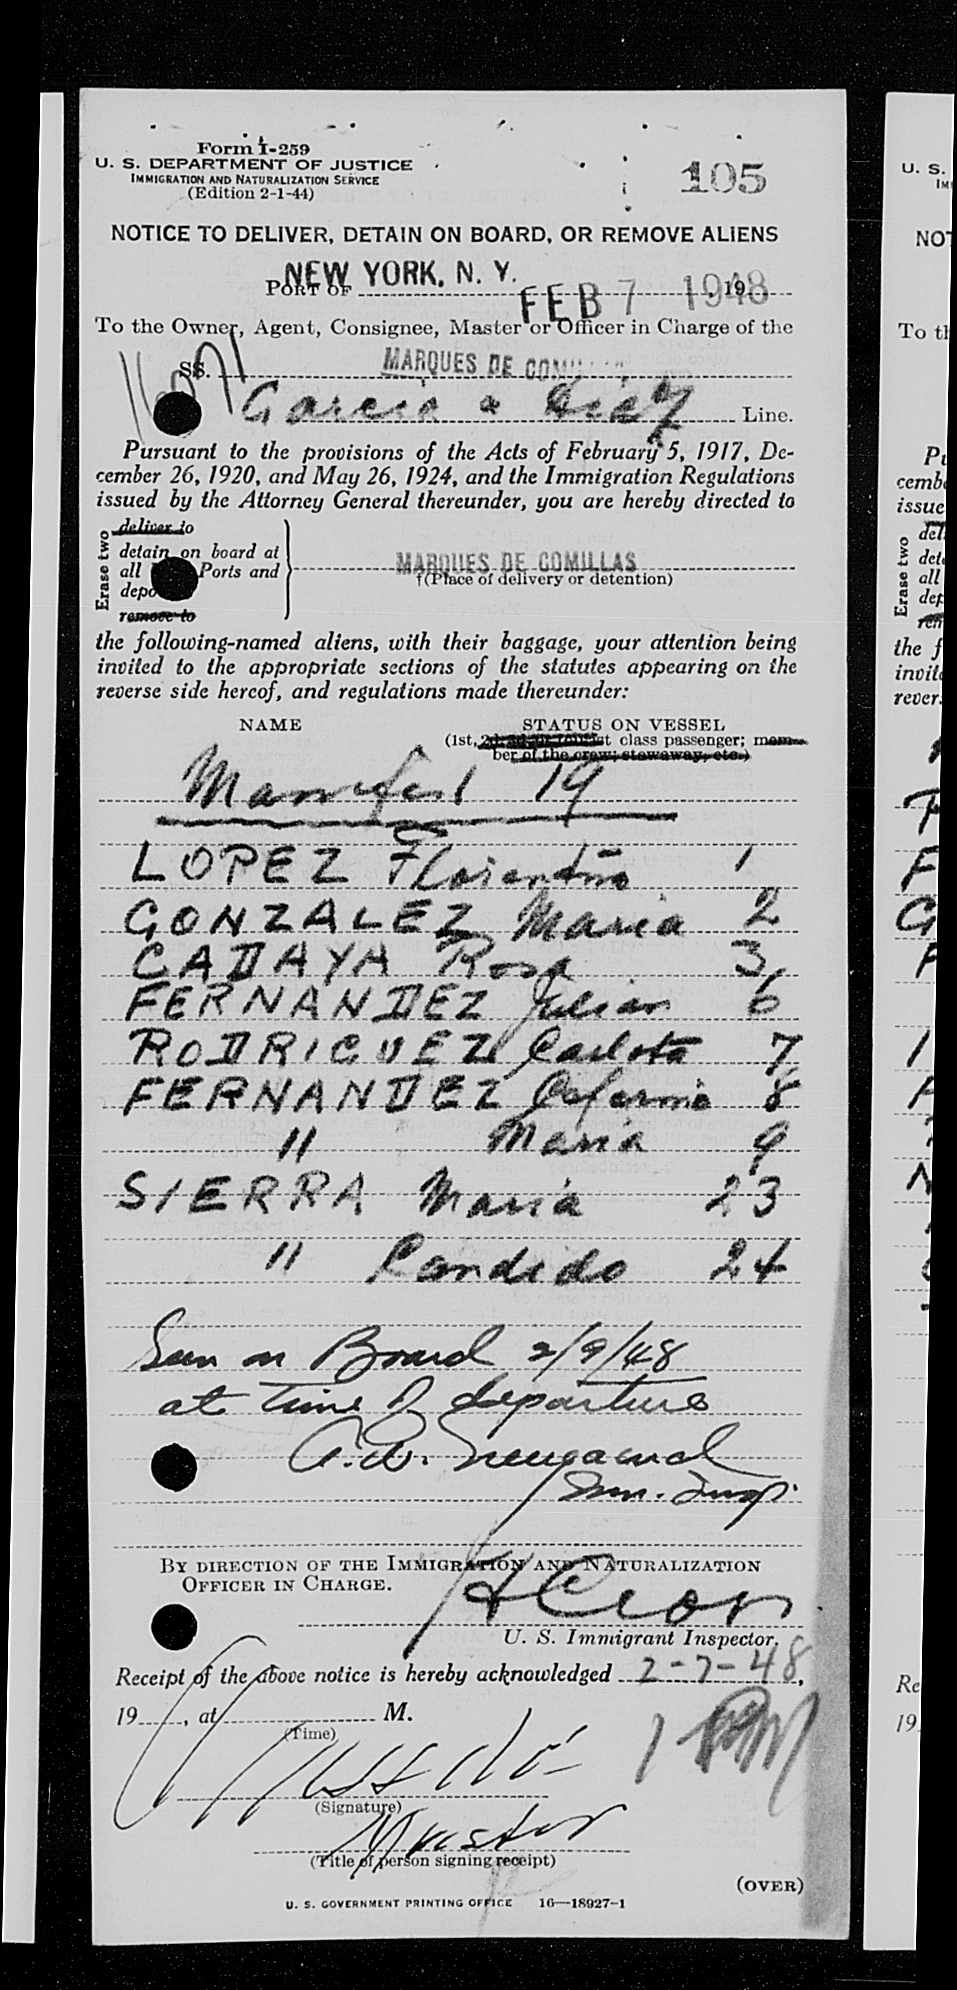 Form I-259
U. S. DEPARTMENT OF JUSTICE
IMMIGRATION AND NATURALIZATION SERVICE
(Edition 2-1-44)
105
NOTICE TO DELIVER, DETAIN ON BOARD, OR REMOVE ALIENS
PORT OF NEW YORK, N. Y.
FEB 7 1948, 19
To the Owner, Agent, Consignee, Master or Officer in Charge of the
SS. MARQUES DE COMILLAS
Garcia & Diaz Line.
Pursuant to the provisions of the Acts of February 5, 1917, De-
cember 26, 1920, and May 26, 1924, and the Immigration Regulations
issued by the Attorney General thereunder, you are hereby directed to
Erase two
deliver to
detain on board at
all Ports and
remove to
MARQUES DE COMILLAS
†(Place of delivery or detention)
the following-named aliens, with their baggage, your attention being
invited to the appropriate sections of the statutes appearing on the
reverse side hereof, and regulations made thereunder:
NAME STATUS ON VESSEL
(1st, class passenger; mem-
ber of the crew; stowaway, etc.)
Manifest 19
LOPEZ Florentino 1
GONZALEZ Maria 2
CADAYA Rosa 3
FERNANDEZ Julian 6
RODRIGUEZ Carlota 7
FERNANDEZ 8
" Maria 9
SIERRA Maria 23
" Candido 24
Seen on Board 2/9/48
at time of departure
Imm. Insp.
BY DIRECTION OF THE IMMIGRATION AND NATURALIZATION
OFFICER IN CHARGE.
U. S. Immigrant Inspector.
Receipt of the above notice is hereby acknowledged 2-7-48,
19, at M.
(Time)
1 PM
(Signature)
Master
(Title of person signing receipt)
(OVER)
U. S. GOVERNMENT PRINTING OFFICE 16—18927-1